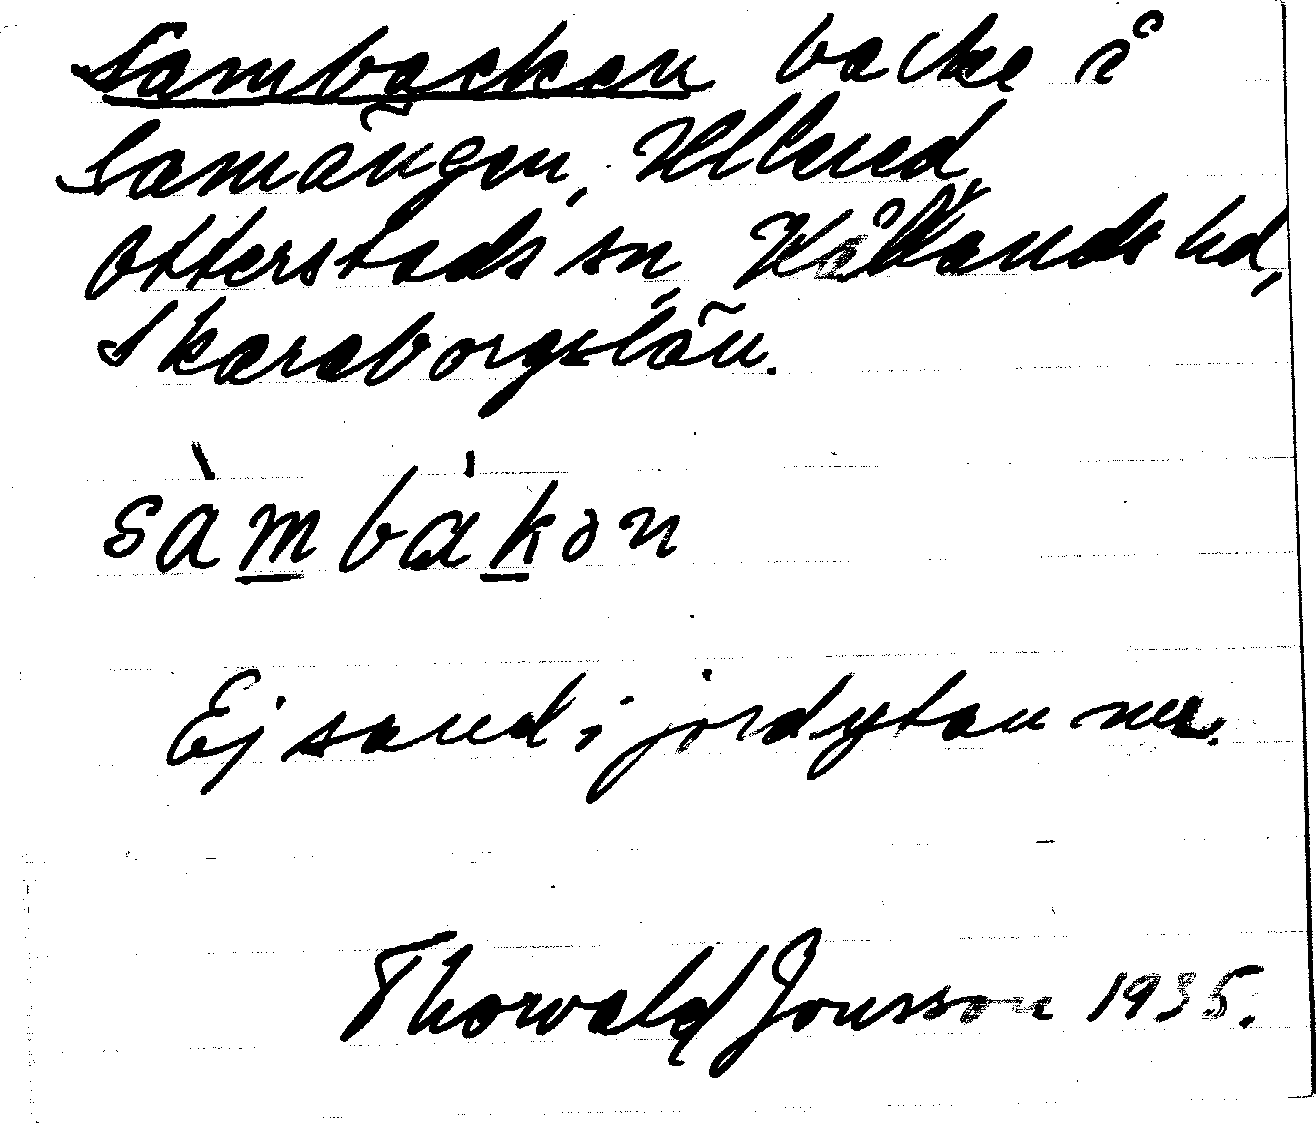 Sambacken backe i
Samängen, Ullerud,
Otterstads sn, Kållands hd,
Skaraborgs län.
sàmbákən
Ej sand i jordytan nu.
Thorvald Jonsson 1935.